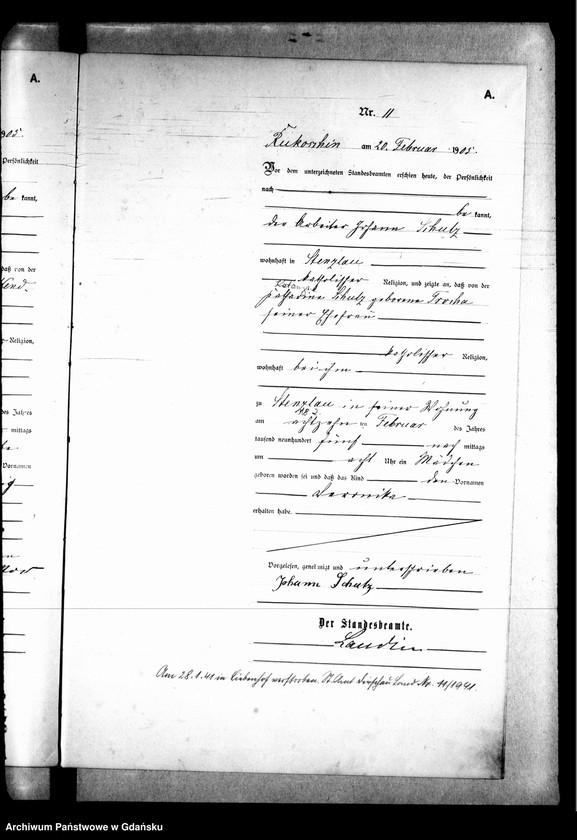 A.
A.
905.
Persönlichkeit
be kannt,
daß von der
Religion,
des Jahres
mittags
Vornamen
Nr. 11
Rukoschin am 20. Februar 1905.
Vor dem unterzeichneten Standesbeamten erschien heute, der Persönlichkeit
nach
be kannt,
der Arbeiter Johann Schulz
wohnhaft in Stenzlau
katholischer Religion, und zeigte an, daß von der
Katharina Schulz geborene
seiner Ehefrau
katholischer Religion,
wohnhaft bei ihm
zu Stenzlau in seiner Wohnung
am achtzehn ten Februar des Jahres
tausend neunhundert fünf nach mittags
um acht Uhr ein Mädchen
geboren worden sei und daß das Kind den Vornamen
Veronika
erhalten habe.
Vorgelesen, genehmigt und unterschrieben
Johann Schulz
Der Standesbeamte.
Landin
Am 28.1.41 in Liebenhof verstorben. St. Amt Dirschau Land Nr. 11/1941.
Archiwum Państwowe w Gdańsku